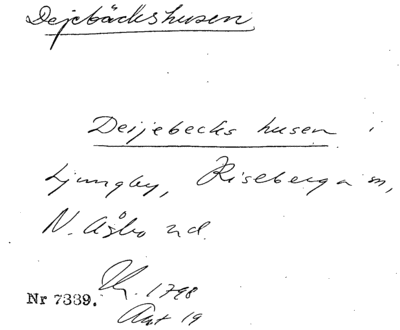 Dejebäckshusen
Deijebecks husen i
Ljungby, Riseberga sn,
N. Åsbo hd.
Nr 7339. 1798
Akt 19